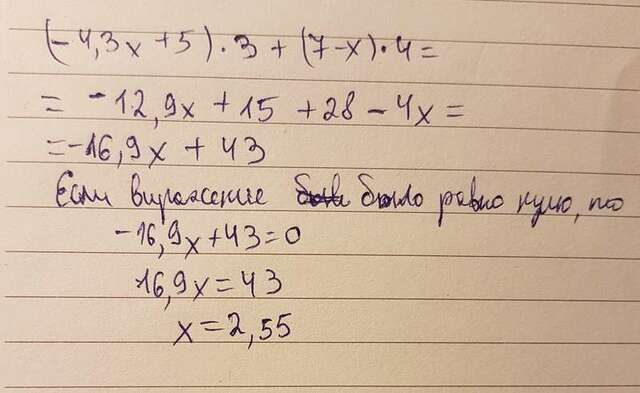 (-4,3x+5)·3+(7-x)·4=
= -12,9x+15+28-4x=
=-16,9x+43
Если выражение было равно нулю, то
-16,9x+43=0
16,9x=43
x=2,55